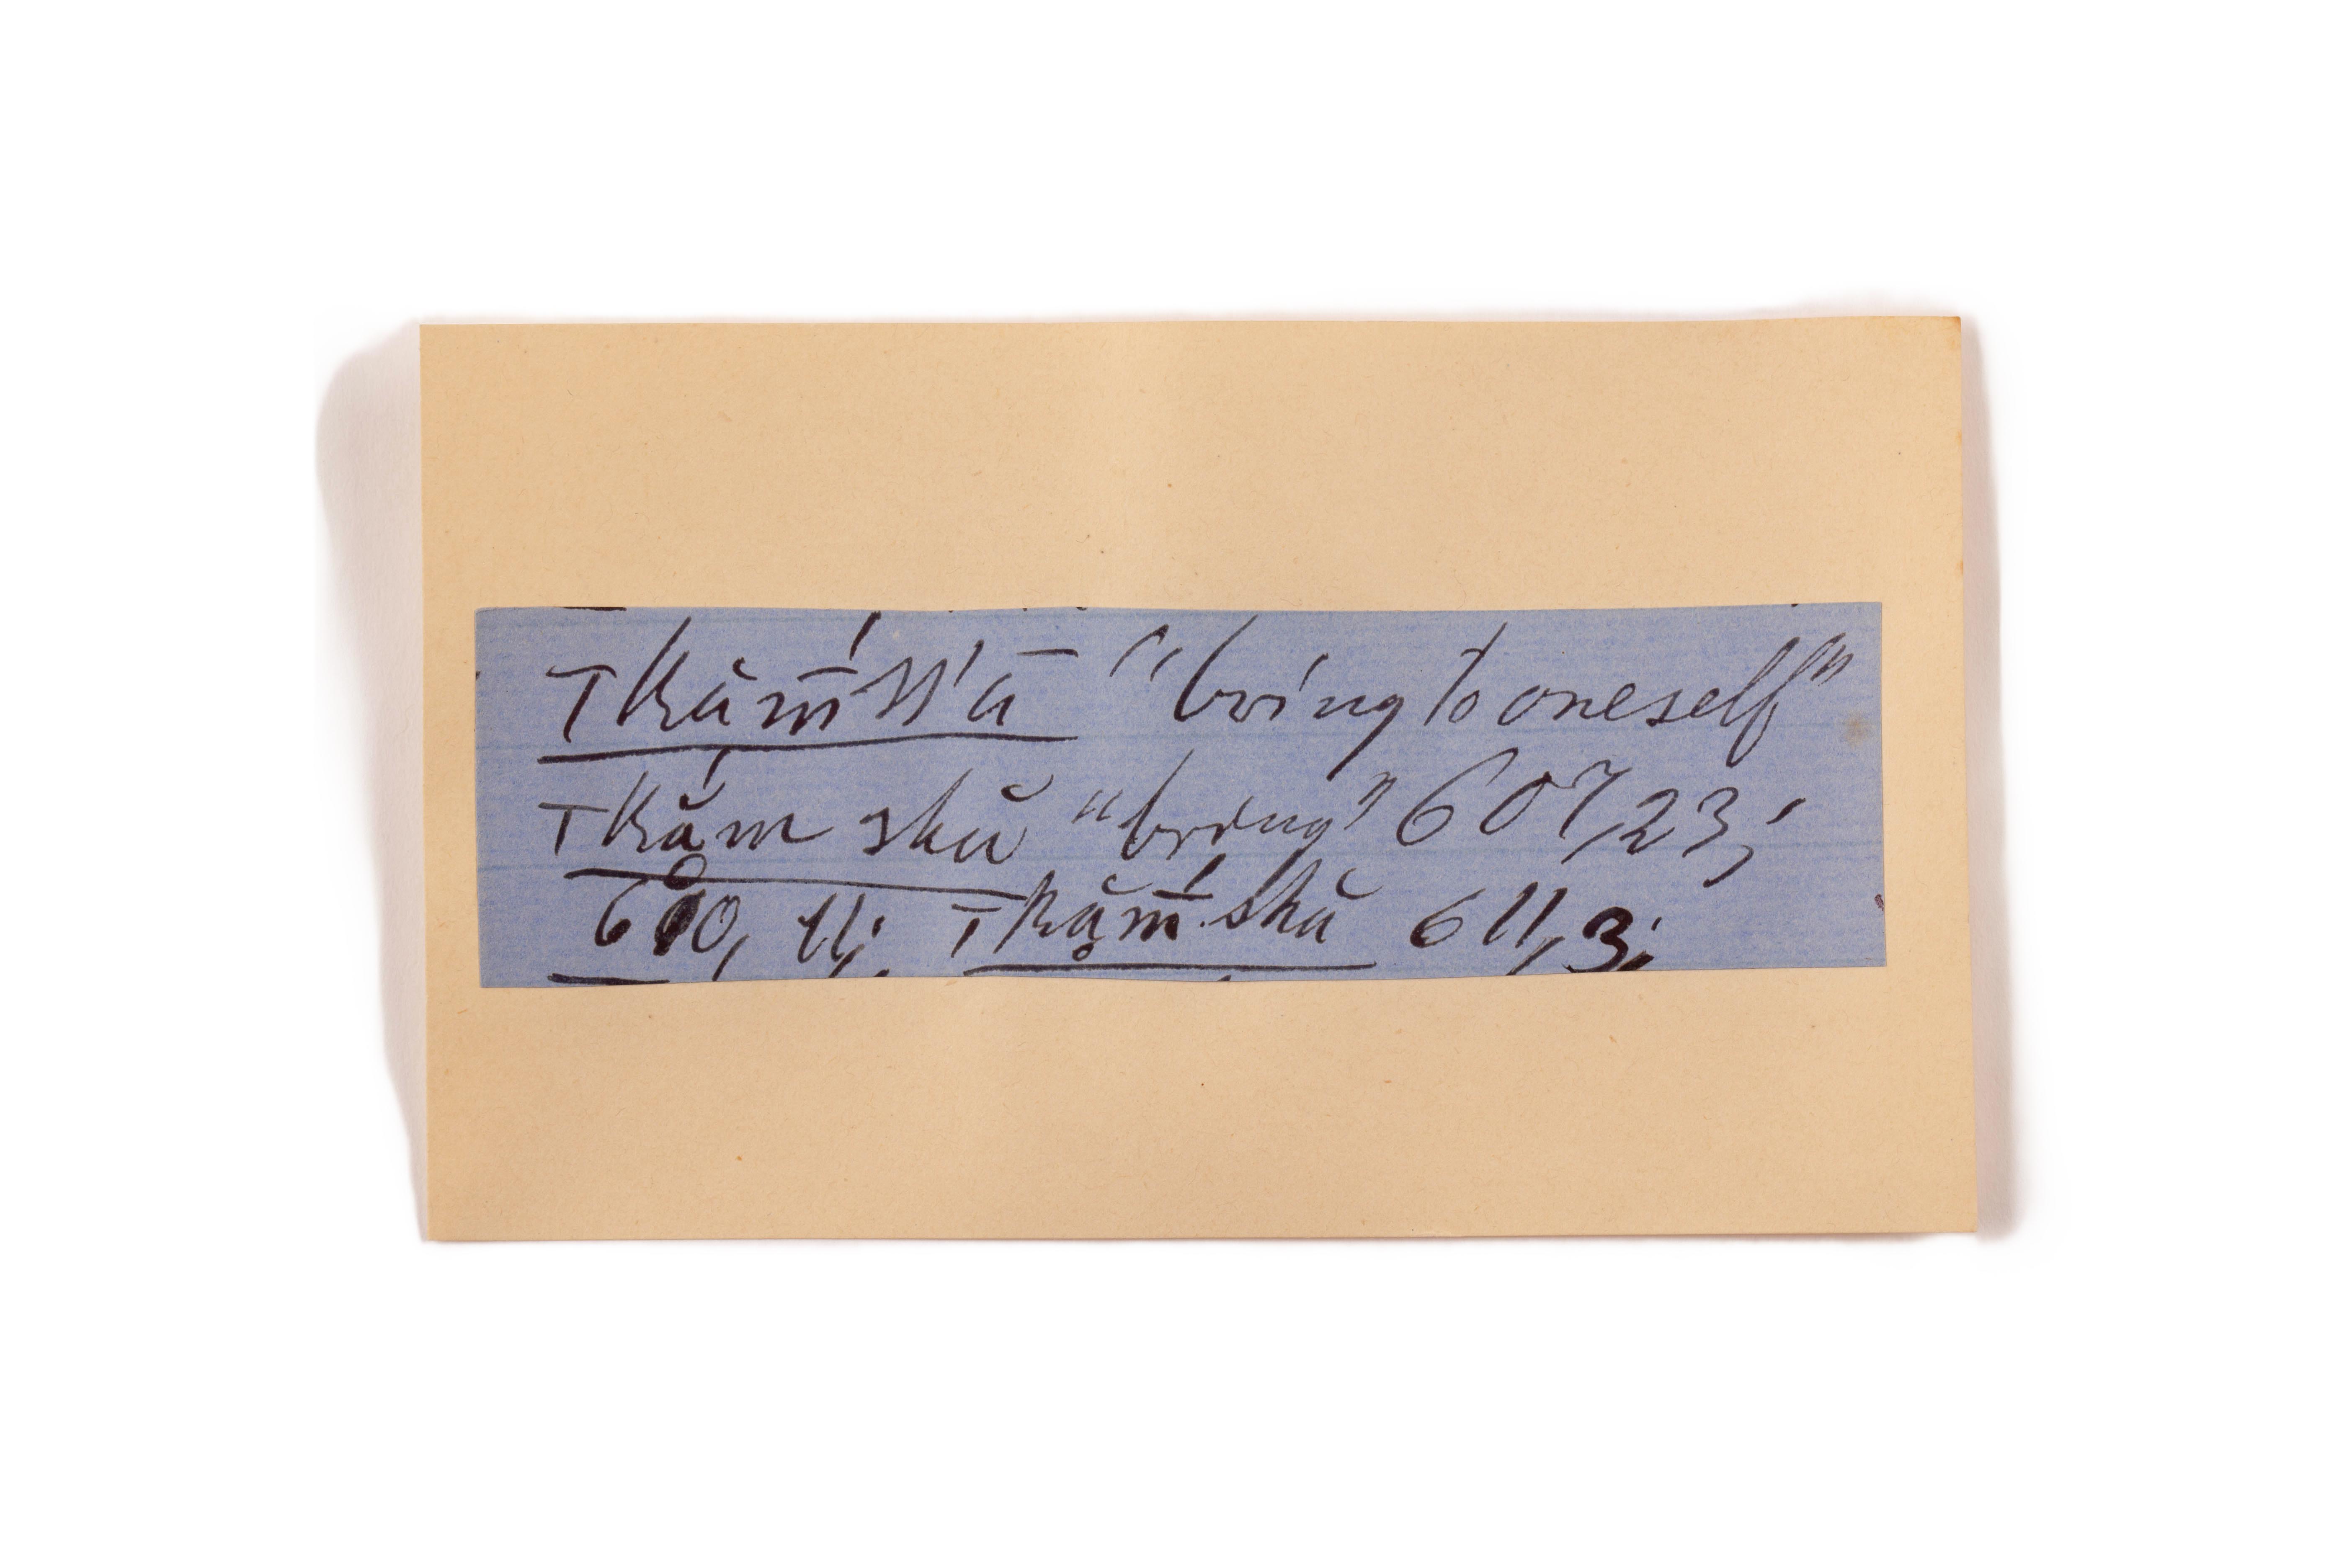 TKăm̄'sk'ā "bring to oneself"
TKăm skă "bring" 607,23;
610, 11; TKăm̄'skă 611,3;